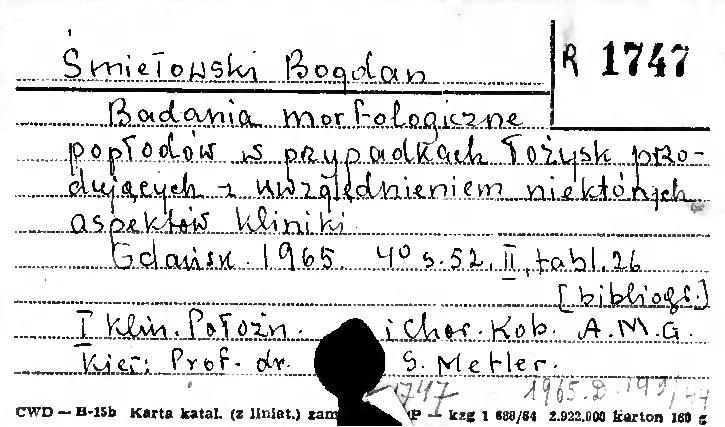 Śmiełowski Bogdan
R 1747
Badania morfologiczne
popłodów w przypadkach łożysk przo-
dujących z uwzględnieniem niektórych
aspektów kliniki.
Gdańsk. 1965. 4° s. 52, II, tabl. 26
[bibliogr.]
I Klin. Położn. i Chor. Kob. A.M.G.
Kier: Prof. dr. S. Metler.
1747 1965.D.
CWD — B-15b Karta katal. (z liniat.) zam P — kzg 1 688/64 2.922.000 karton 160 g